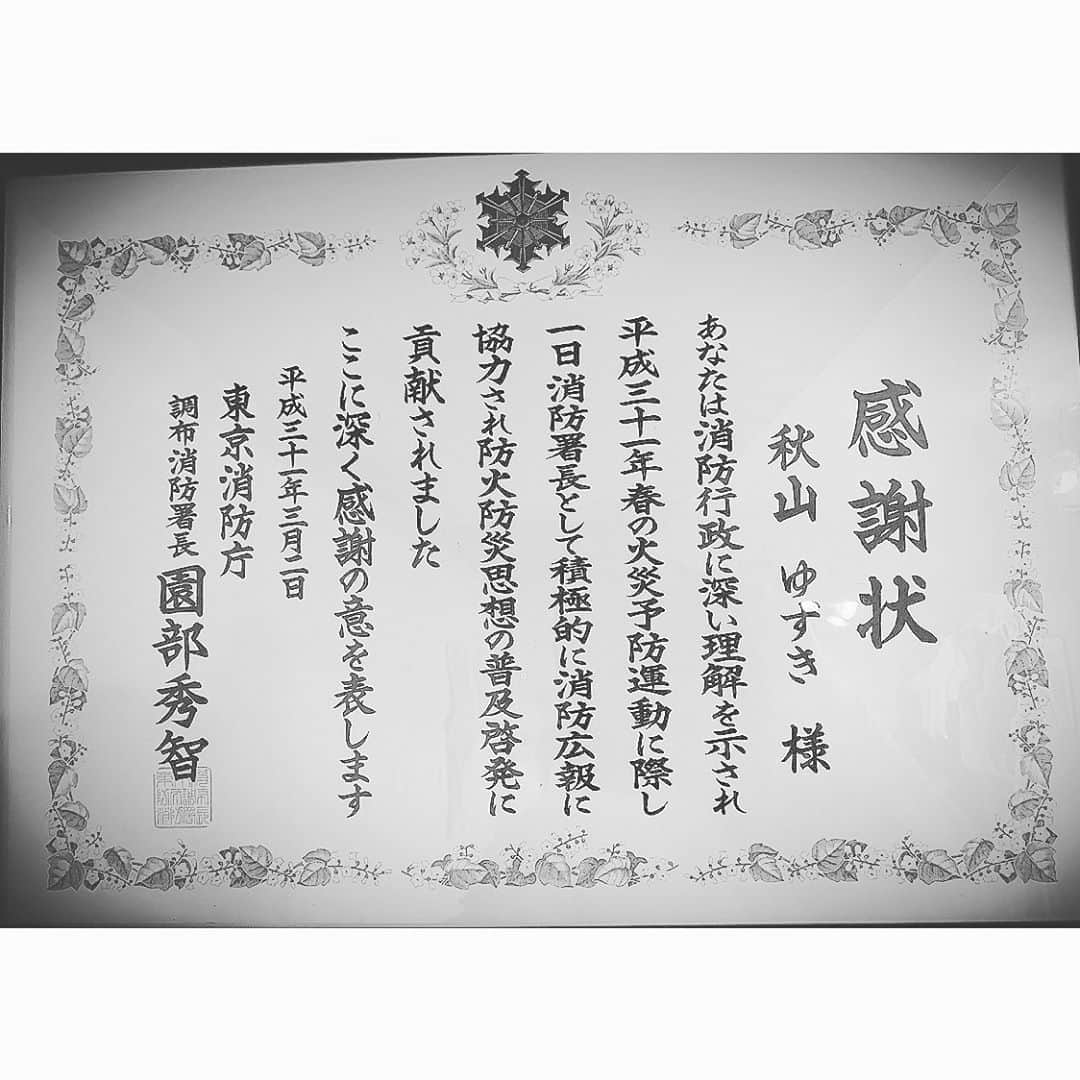 感謝状
秋山 ゆずき 様
あなたは消防行政に深い理解を示され
平成三十一年春の火災予防運動に際し
一日消防署長として積極的に消防広報に
協力され防火防災思想の普及啓発に
貢献されました
ここに深く感謝の意を表します
平成三十一年三月二日
東京消防庁
調布消防署長 園部秀智